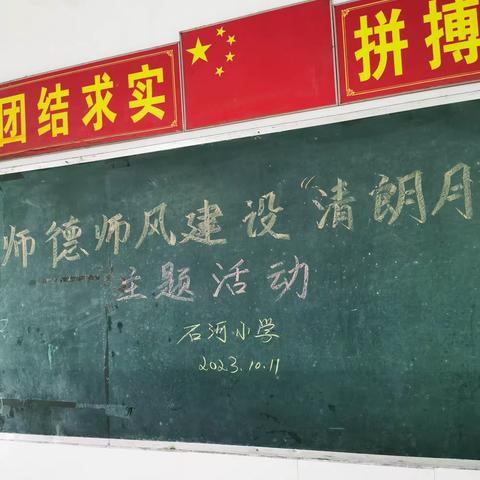 团结求实 拼搏
师德师风建设“清朗月
主题活动
石河小学
2023.10.11